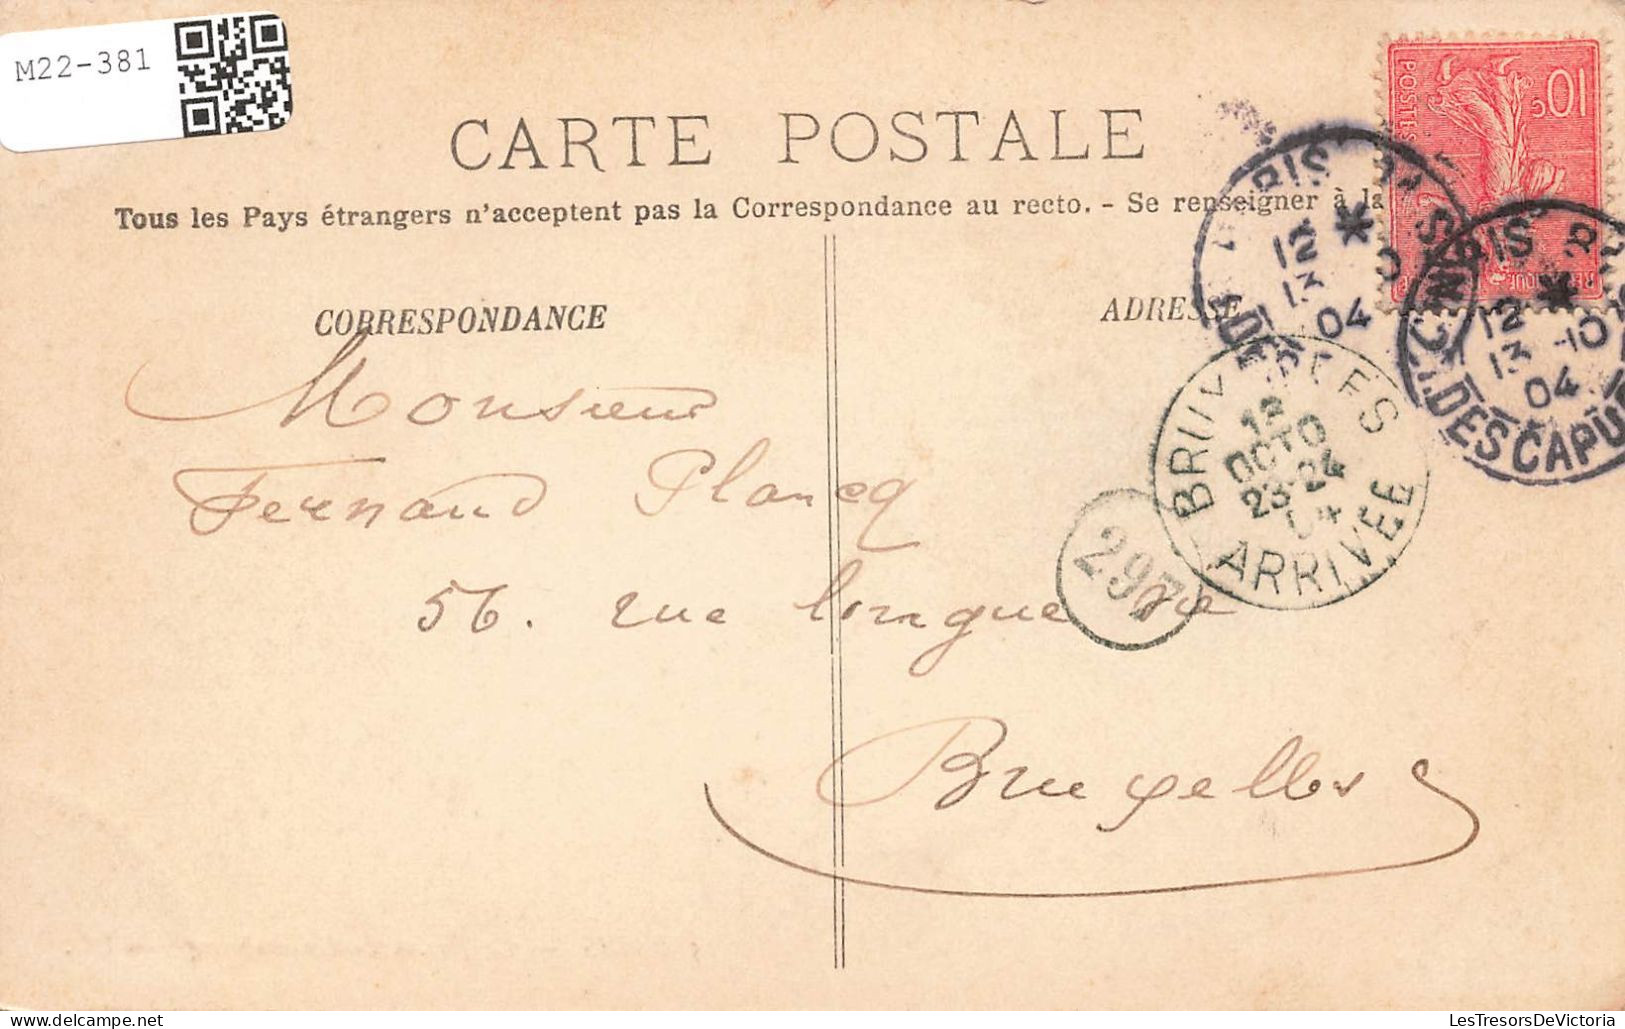 M22-381
CARTE POSTALE
Tous les Pays étrangers n'acceptent pas la Correspondance au recto. - Se renseigner à la
CORRESPONDANCE
ADRESSE
10c
POSTES
12
13
04
12
13 -10
04
DES CAPU
BRUXELLES
12
OCTO
23-24
04
ARRIVÉE
297
Monsieur
Fernand Plancq
56. rue longue vie
Bruxelles
LesTresorsDeVictoria